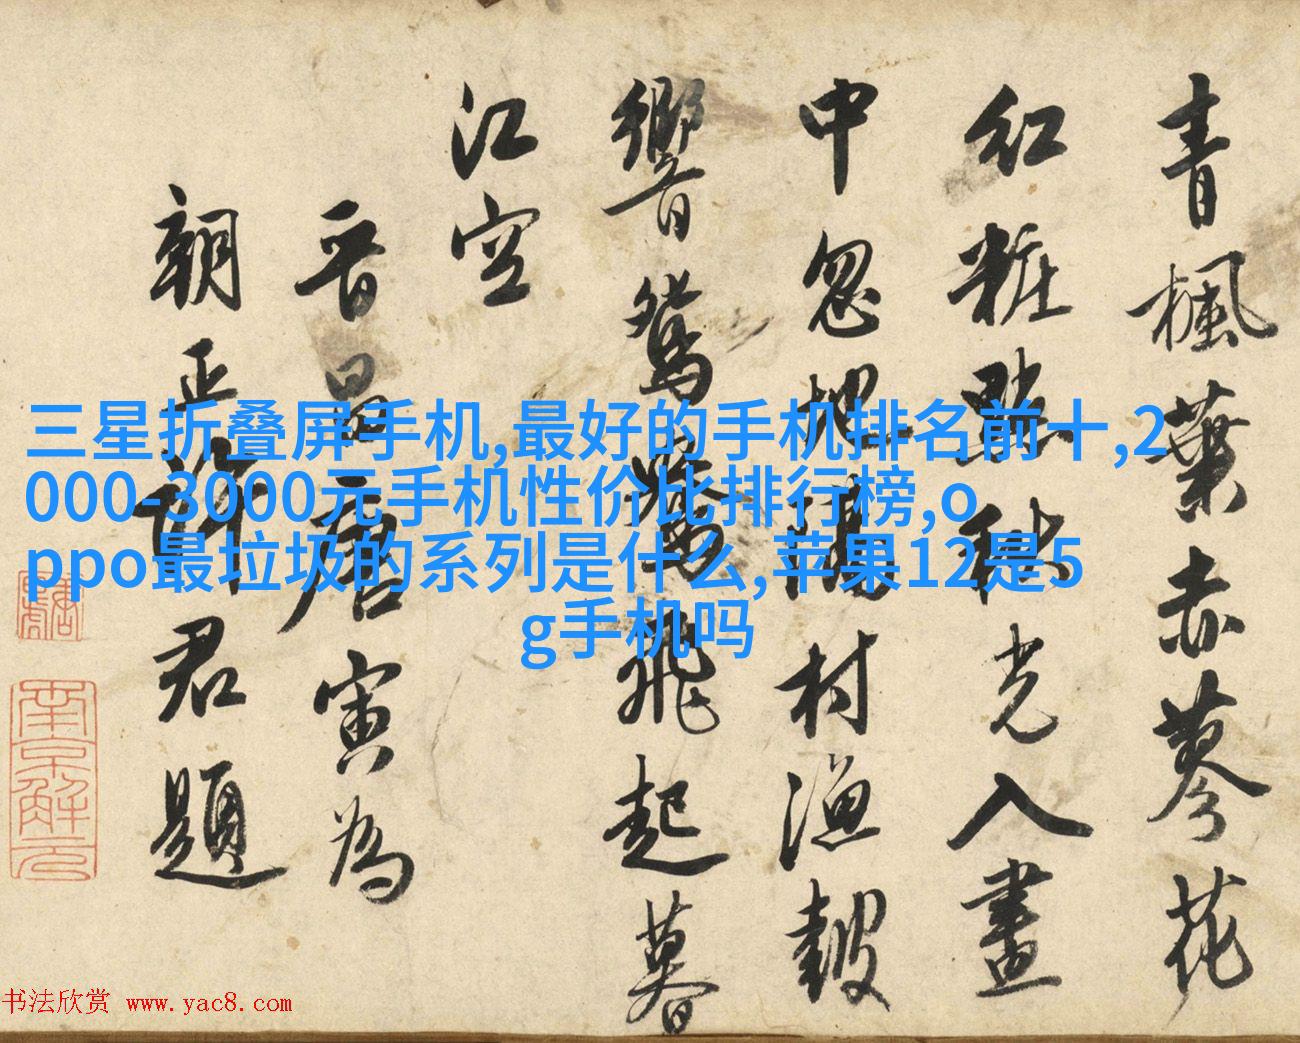 青楓葉赤蓼花
紅粧點秋光入畫
中忽埋隔村漁鼓
響鴛鴦飛起暮
江空
晋昌唐寅為
朝正許君題
南京解元
三星折叠屏手机,最好的手机排名前十,2
000-3000元手机性价比排行榜,o
ppo最垃圾的系列是什么,苹果12是5
g手机吗
书法欣赏 www.yac8.com